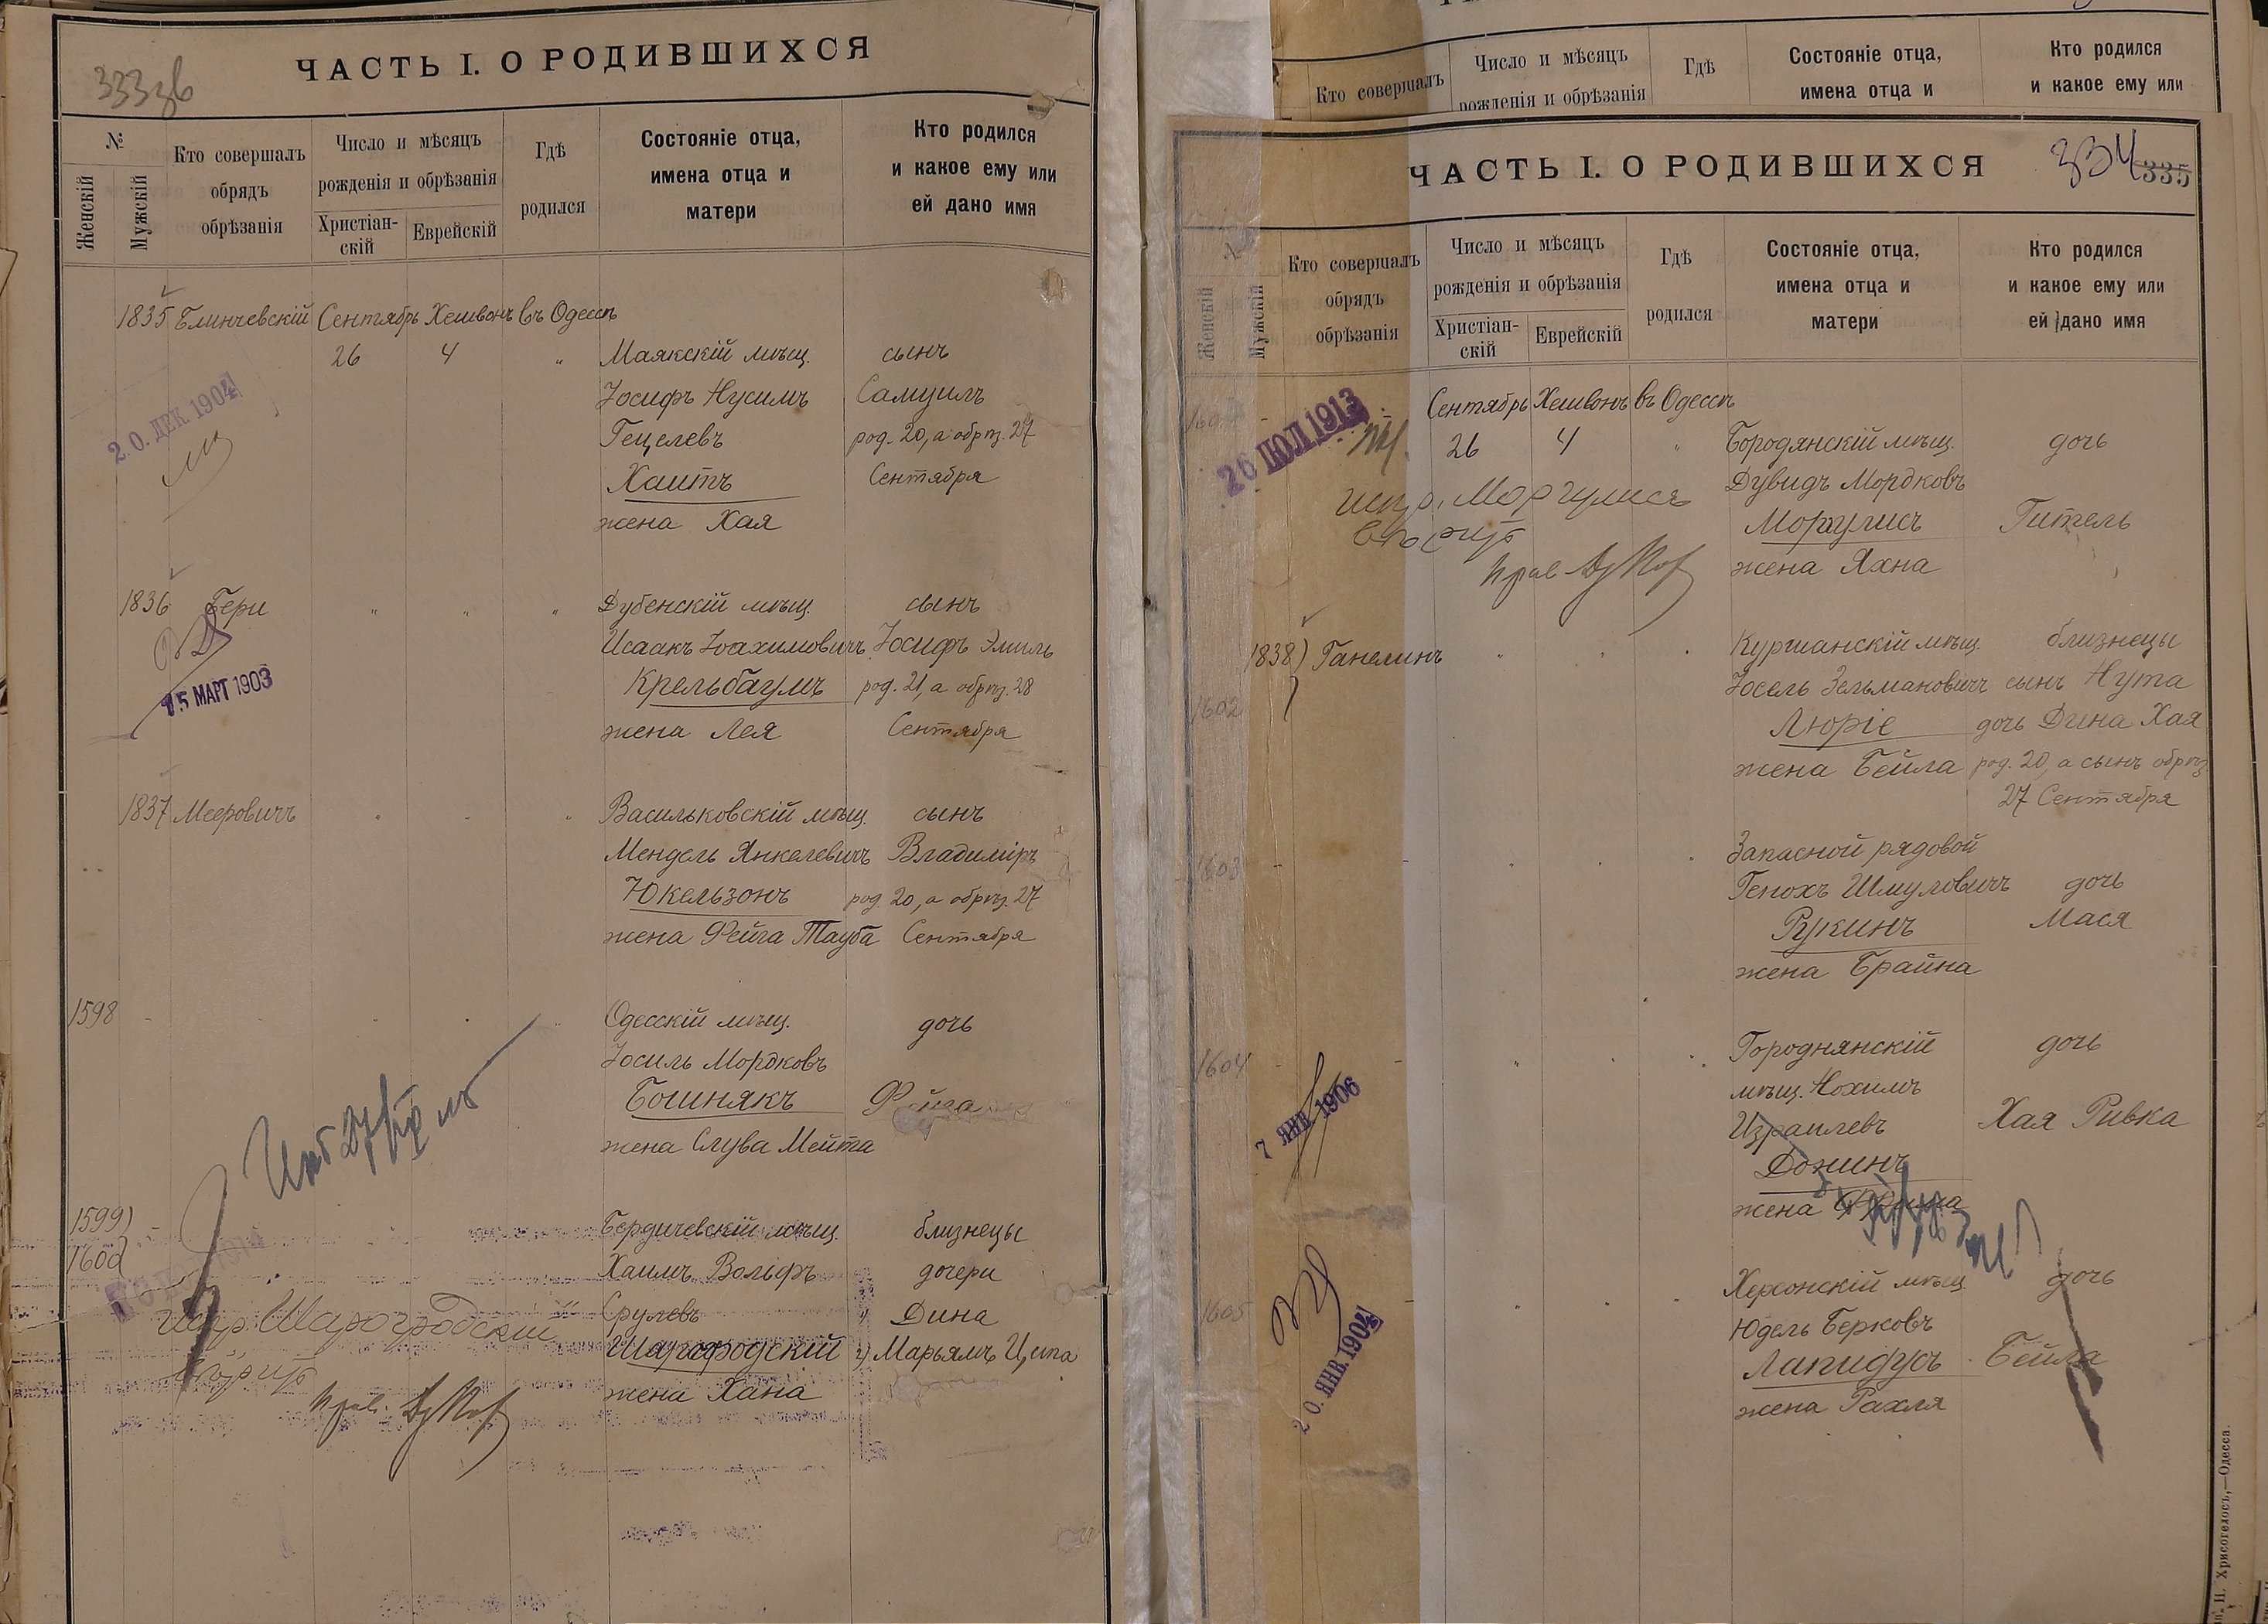 333 об
ЧАСТЬ I. О РОДИВШИХСЯ
№
Женскій
Мужскій
Кто совершалъ
обрядъ
обрѣзанія
Число и мѣсяцъ
рожденія и обрѣзанія
Христіан-
скій
Еврейскій
Гдѣ
родился
Состояніе отца,
имена отца и
матери
Кто родился
и какое ему или
ей дано имя
1835 Блинчевскій Сентябрь Хешвонъ въ Одессѣ
26 4 " Маякскій мѣщ. сынъ
Іосифъ Нусимъ Самуилъ
Гецелевъ род. 20, а обрѣз. 27
Хаитъ Сентября
жена Хая
20. ДЕК. 1904
1836 Бери " " " Дубенскій мѣщ. сынъ
Исаакъ Іоахимовичъ Іосифъ Эмиль
Крельбаумъ род. 21, а обрѣз. 28
жена Лея Сентября
15 МАРТ 1903
1837 Мееровичъ " " " Васильковскій мѣщ. сынъ
Мендель Янкелевичъ Владиміръ
Юкельзонъ род. 20, а обрѣз. 27
жена Фейга Тауба Сентября
1598 - Одесскій мѣщ. дочь
Іосиль Мордковъ
Бошнякъ Фейга
жена Слува Мейта
1599) - Бердичевскій мѣщ. близнецы
1600) Хаимъ Вольфъ дочери
Срулевъ 1) Дина
Шаргородскій 2) Марьямъ Ципа
жена Хана
испр. Шарогродскій
вѣрить
Кто совершалъ
Число и мѣсяцъ
рожденія и обрѣзанія
Гдѣ
Состояніе отца,
имена отца и
Кто родился
и какое ему или
334 335
ЧАСТЬ I. О РОДИВШИХСЯ
Женскій
Мужскій
Кто совершалъ
обрядъ
обрѣзанія
Число и мѣсяцъ
рожденія и обрѣзанія
Христіан-
скій
Еврейскій
Гдѣ
родился
Состояніе отца,
имена отца и
матери
Кто родился
и какое ему или
ей дано имя
Сентябрь Хешвонъ въ Одессѣ
26 4 " Бородянскій мѣщ. дочь
Дувидъ Мордковъ
Моргулисъ Гитель
жена Яхна
26 ІЮЛ 1913
испр. Моргулисъ
вѣрить
1838) Ганелинъ " " " Куршанскій мѣщ. близнецы
Іосель Зельмановичъ сынъ Нута
1602 Люріе дочь Дина Хая
жена Бейла род. 20, а сынъ обрѣз.
27 Сентября
1603 - Запасной рядовой
Генохъ Шмуловичъ дочь
Рукинъ Мася
жена Брайна
1604 - Городнянскій дочь
мѣщ. Нохимъ
Израилевъ Хая Ривка
Дожинъ
жена
7 ЯНВ 1906
1605 - Херсонскій мѣщ. дочь
Юдель Берковъ
Лапидусъ Бейла
жена Рахля
20. ЯНВ. 1904
Хрисогелосъ,—Одесса.